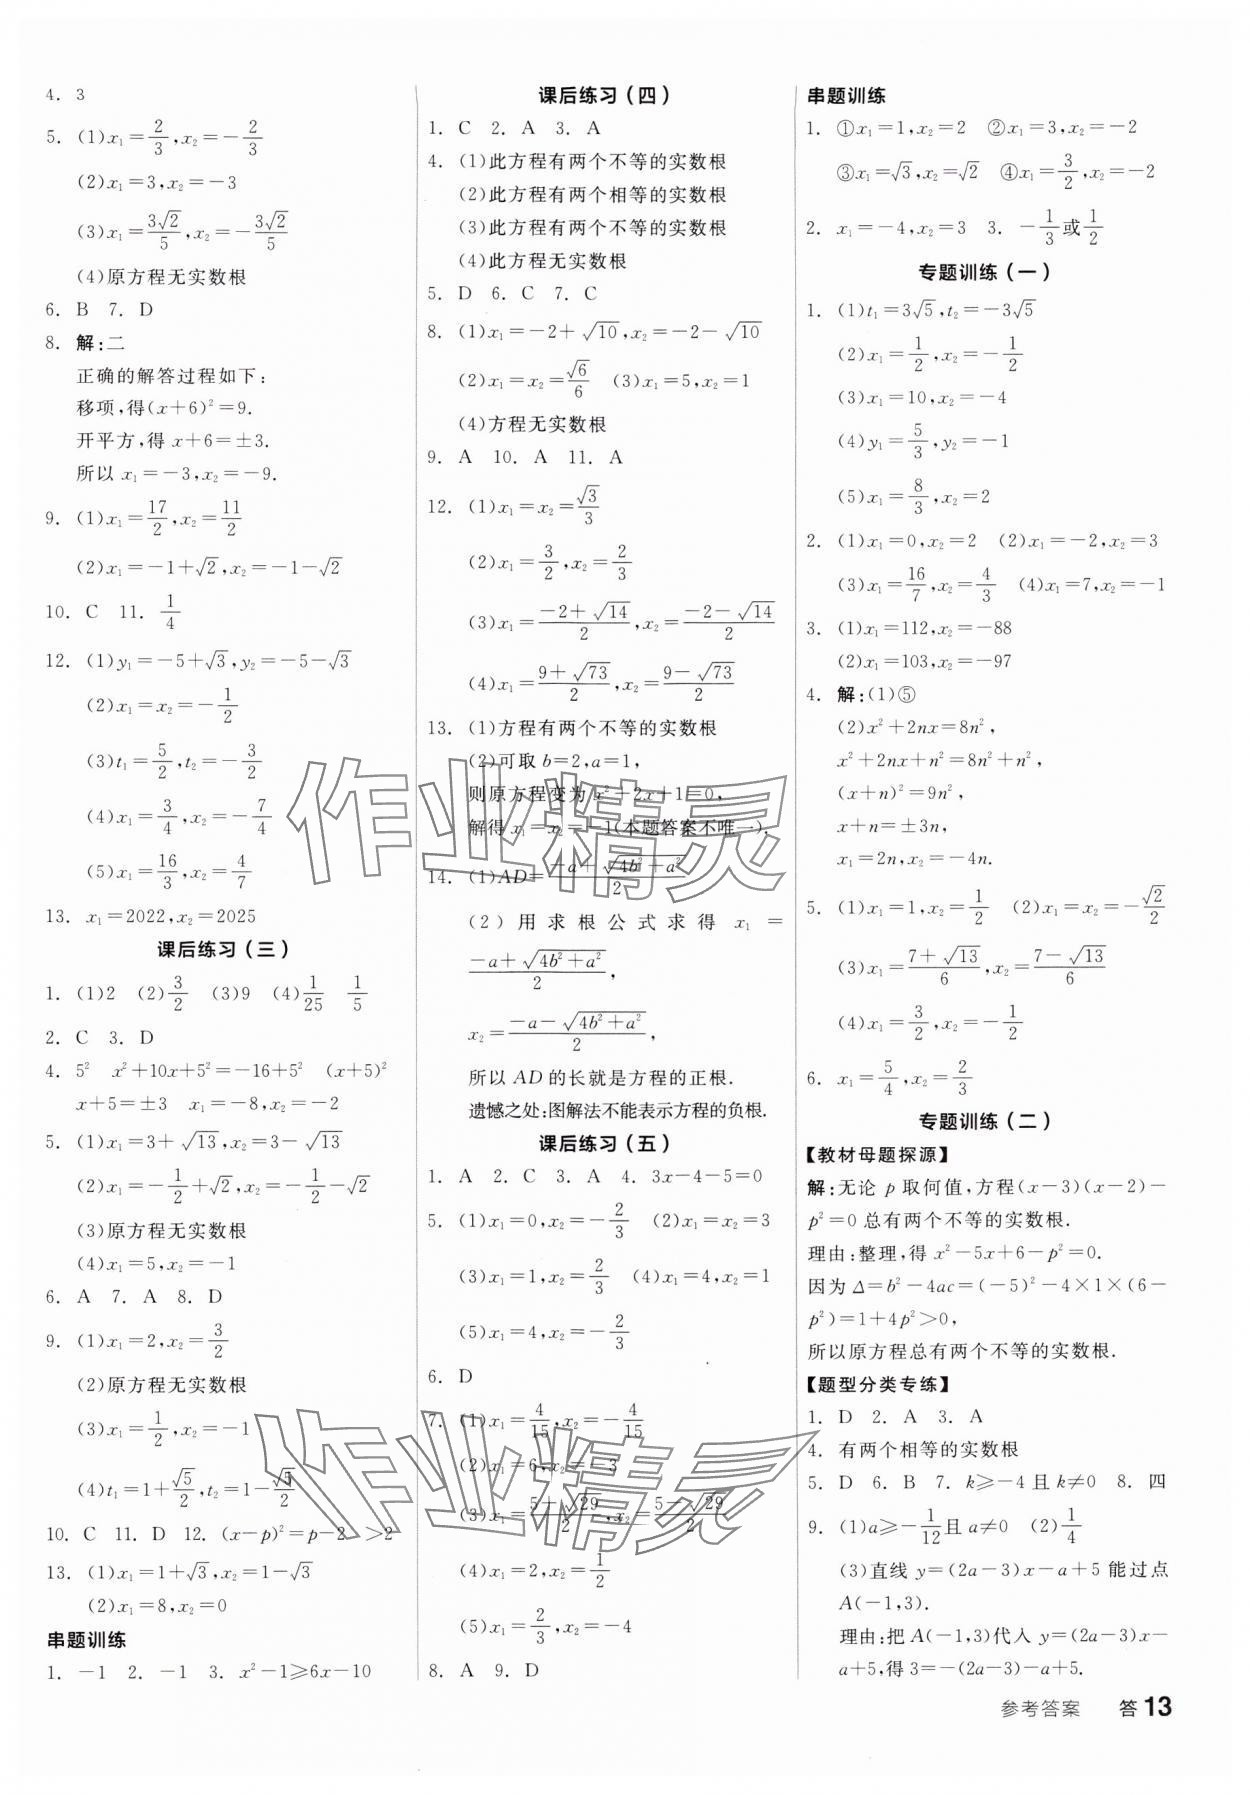 4. 3
5. (1)x₁=2/3,x₂=-2/3
(2)x₁=3,x₂=-3
(3)x₁=3√2/5,x₂=-3√2/5
(4)原方程无实数根
6. B 7. D
8. 解:二
正确的解答过程如下:
移项,得(x+6)²=9.
开平方,得 x+6=±3.
所以 x₁=-3,x₂=-9.
9. (1)x₁=17/2,x₂=11/2
(2)x₁=-1+√2,x₂=-1-√2
10. C 11. 1/4
12. (1)y₁=-5+√3,y₂=-5-√3
(2)x₁=x₂=-1/2
(3)t₁=5/2,t₂=-3/2
(4)x₁=3/4,x₂=-7/4
(5)x₁=16/3,x₂=4/7
13. x₁=2022,x₂=2025
课后练习(三)
1. (1)2 (2)3/2 (3)9 (4)1/25 1/5
2. C 3. D
4. 5² x²+10x+5²=-16+5² (x+5)²
x+5=±3 x₁=-8,x₂=-2
5. (1)x₁=3+√13,x₂=3-√13
(2)x₁=-1/2+√2,x₂=-1/2-√2
(3)原方程无实数根
(4)x₁=5,x₂=-1
6. A 7. A 8. D
9. (1)x₁=2,x₂=3/2
(2)原方程无实数根
(3)x₁=1/2,x₂=-1
(4)t₁=1+√5/2,t₂=1-√5/2
10. C 11. D 12. (x-p)²=p-2 >2
13. (1)x₁=1+√3,x₂=1-√3
(2)x₁=8,x₂=0
串题训练
1. -1 2. -1 3. x²-1≥6x-10
课后练习(四)
1. C 2. A 3. A
4. (1)此方程有两个不等的实数根
(2)此方程有两个相等的实数根
(3)此方程有两个不等的实数根
(4)此方程无实数根
5. D 6. C 7. C
8. (1)x₁=-2+√10,x₂=-2-√10
(2)x₁=x₂=√6/6 (3)x₁=5,x₂=1
(4)方程无实数根
9. A 10. A 11. A
12. (1)x₁=x₂=√3/3
(2)x₁=3/2,x₂=2/3
(3)x₁=(-2+√14)/2,x₂=(-2-√14)/2
(4)x₁=(9+√73)/2,x₂=(9-√73)/2
13. (1)方程有两个不等的实数根
(2)可取 b=2,a=1,
则原方程变为 x²+2x+1=0,
解得 x₁=x₂=-1(本题答案不唯一).
14. (1)AD=(-a+√(4b²+a²))/2
(2)用求根公式求得 x₁=
(-a+√(4b²+a²))/2,
x₂=(-a-√(4b²+a²))/2,
所以 AD 的长就是方程的正根.
遗憾之处:图解法不能表示方程的负根.
课后练习(五)
1. A 2. C 3. A 4. 3x-4-5=0
5. (1)x₁=0,x₂=-2/3 (2)x₁=x₂=3
(3)x₁=1,x₂=2/3 (4)x₁=4,x₂=1
(5)x₁=4,x₂=-2/3
6. D
7. (1)x₁=4/15,x₂=-4/15
(2)x₁=6,x₂=-3
(3)x₁=(5+√29)/2,x₂=(5-√29)/2
(4)x₁=2,x₂=1/2
(5)x₁=2/3,x₂=-4
8. A 9. D
串题训练
1. ①x₁=1,x₂=2 ②x₁=3,x₂=-2
③x₁=√3,x₂=√2 ④x₁=3/2,x₂=-2
2. x₁=-4,x₂=3 3. -1/3或1/2
专题训练(一)
1. (1)t₁=3√5,t₂=-3√5
(2)x₁=1/2,x₂=-1/2
(3)x₁=10,x₂=-4
(4)y₁=5/3,y₂=-1
(5)x₁=8/3,x₂=2
2. (1)x₁=0,x₂=2 (2)x₁=-2,x₂=3
(3)x₁=16/7,x₂=4/3 (4)x₁=7,x₂=-1
3. (1)x₁=112,x₂=-88
(2)x₁=103,x₂=-97
4. 解:(1)⑤
(2)x²+2nx=8n²,
x²+2nx+n²=8n²+n²,
(x+n)²=9n²,
x+n=±3n,
x₁=2n,x₂=-4n.
5. (1)x₁=1,x₂=1/2 (2)x₁=x₂=-√2/2
(3)x₁=(7+√13)/6,x₂=(7-√13)/6
(4)x₁=3/2,x₂=-1/2
6. x₁=5/4,x₂=2/3
专题训练(二)
【教材母题探源】
解:无论 p 取何值,方程(x-3)(x-2)-
p²=0 总有两个不等的实数根.
理由:整理,得 x²-5x+6-p²=0.
因为 Δ=b²-4ac=(-5)²-4×1×(6-
p²)=1+4p²>0,
所以原方程总有两个不等的实数根.
【题型分类专练】
1. D 2. A 3. A
4. 有两个相等的实数根
5. D 6. B 7. k≥-4且k≠0 8. 四
9. (1)a≥-1/12且a≠0 (2)1/4
(3)直线 y=(2a-3)x-a+5 能过点
A(-1,3).
理由:把 A(-1,3)代入 y=(2a-3)x-
a+5,得 3=-(2a-3)-a+5.
参考答案 答13
作业精灵
作业精灵